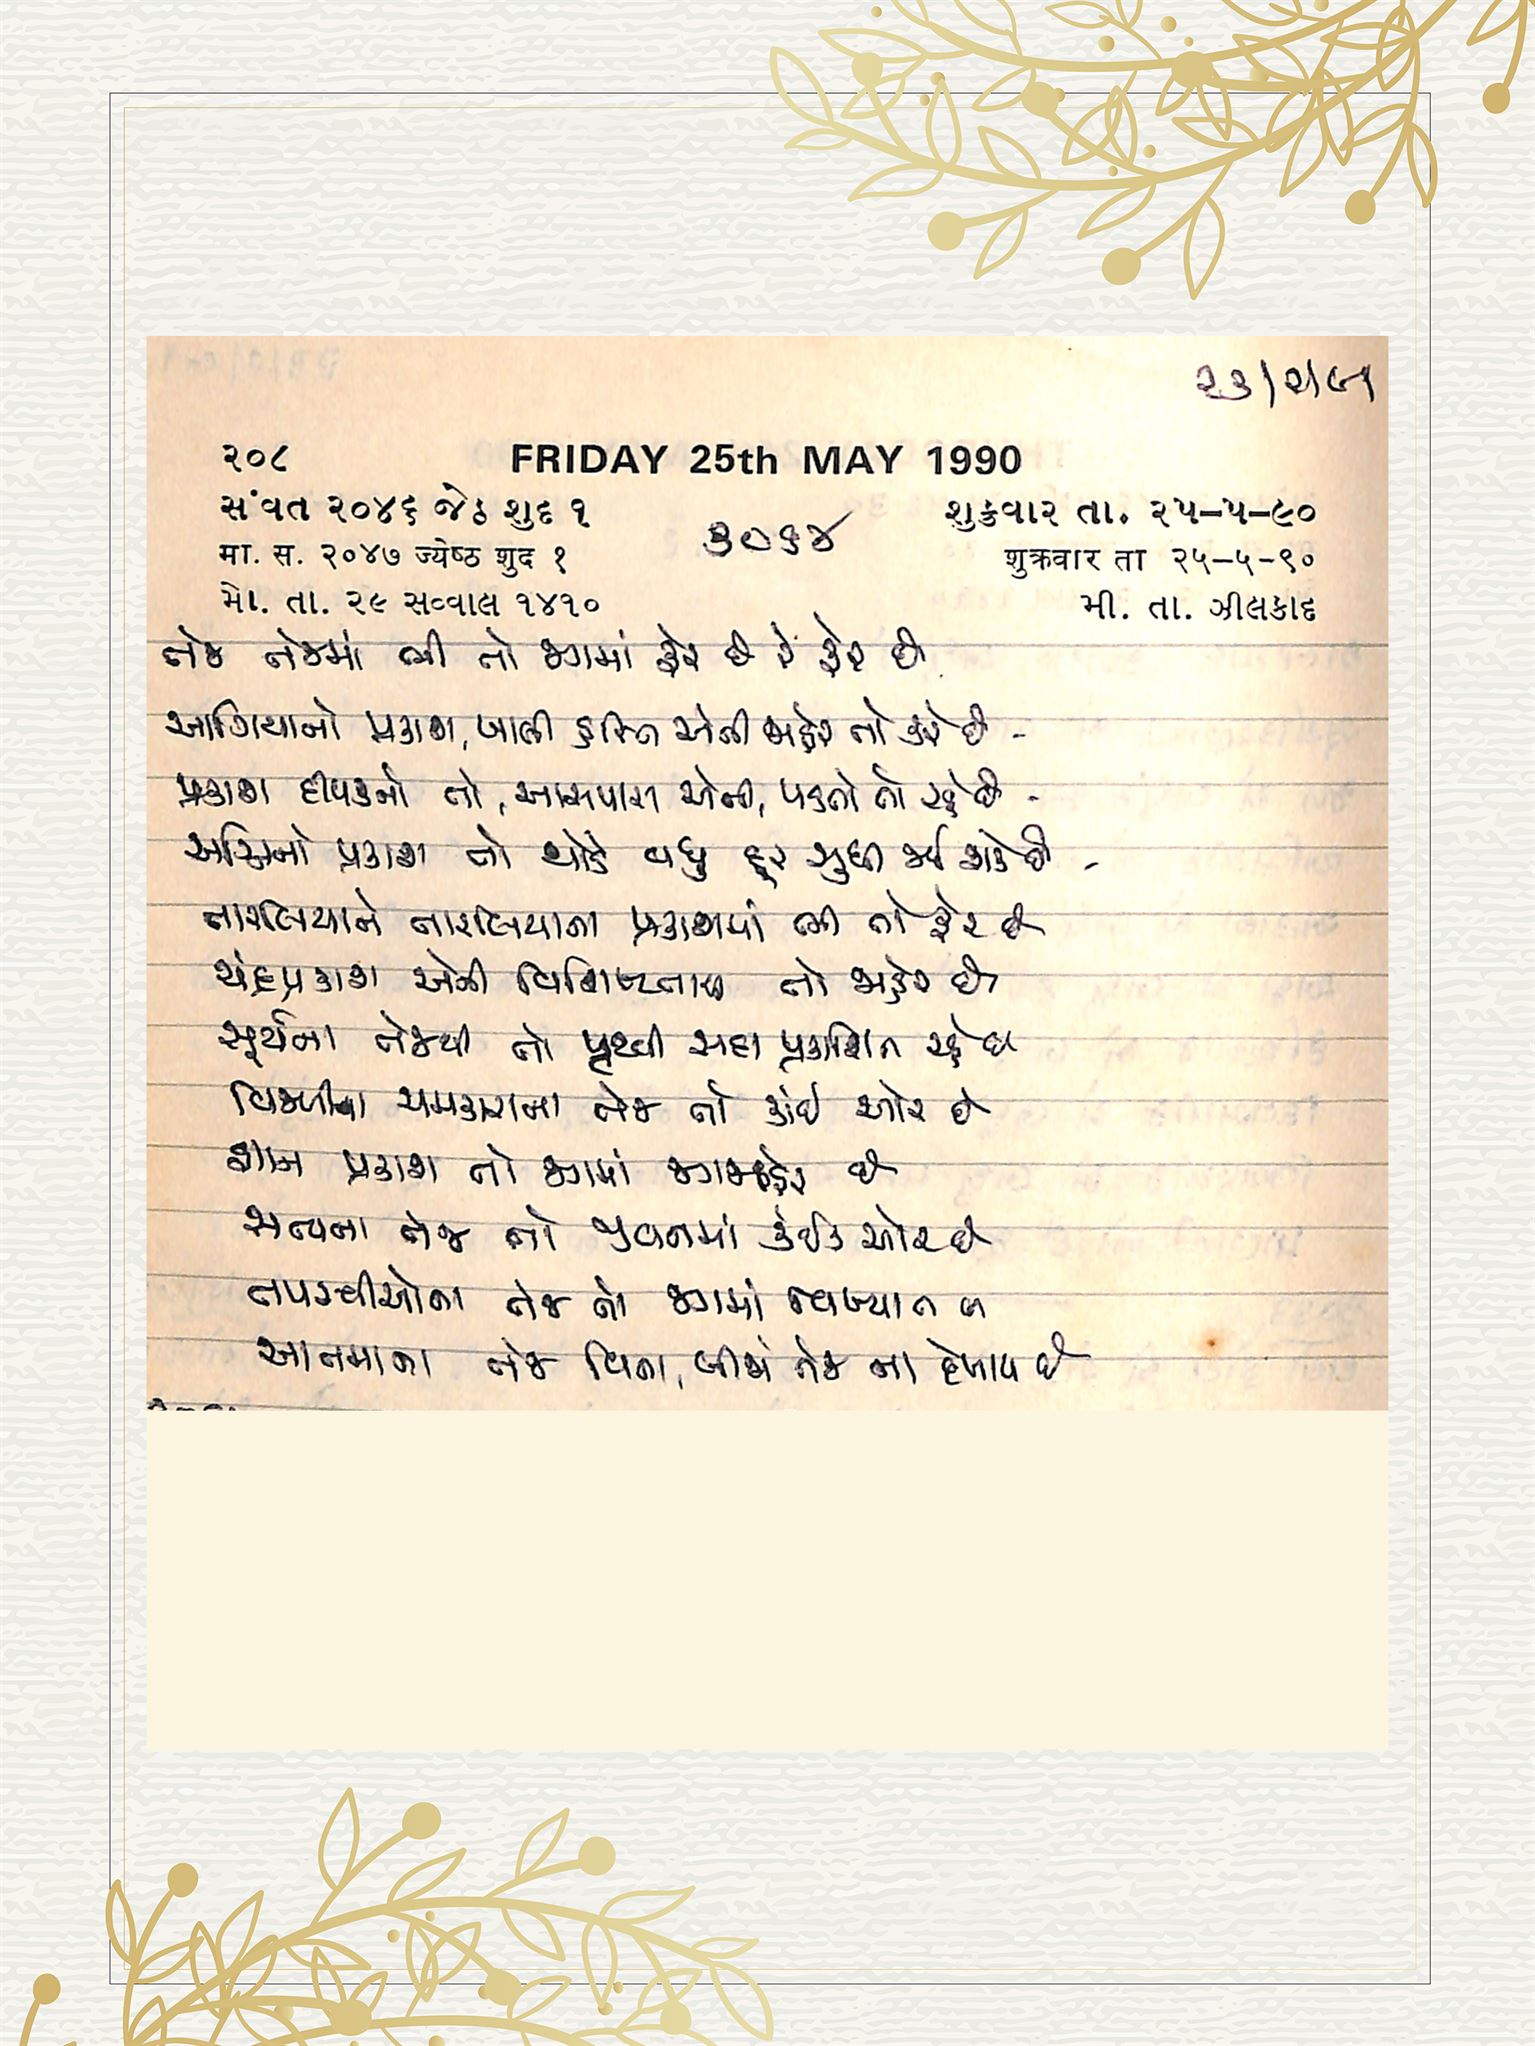 ૨૩/૨/૯૧
૨૦૮ FRIDAY 25th MAY 1990
સંવત ૨૦૪૬ જેઠ શુદ ૧ શુક્રવાર તા. ૨૫-૫-૯૦
૩૦૬૪
मा. स. २०४७ ज्येष्ठ शुद १ शुक्रवार ता २५-५-९०
મો. તા. ૨૯ સવ્વાલ ૧૪૧૦ મી. તા. ઝીલકાદ
તેજ તેજમાં ભી તો જગમાં ફેર છે રે ફેર છે
આગિયાનો પ્રકાશ, ખાલી હસ્તિ એની જાહેર તો કરે છે -
પ્રકાશ દીપકનો તો, આસપાસ એની, પડતો તો રહે છે -
અગ્નિનો પ્રકાશ તો થોડે વધુ દૂર સુધી જઈ શકે છે -
તારલિયાને તારલિયાના પ્રકાશમાં ભી તો ફેર છે
ચંદ્રપ્રકાશ એની વિશિષ્ટતાએ તો જાહેર છે
સૂર્યના તેજથી તો પૃથ્વી સદા પ્રકાશિત રહે છે
વિજળીના ચમકારાના તેજ તો કાંઈ ઓર છે
જ્ઞાન પ્રકાશ તો જગમાં જગજાહેર છે
સત્યના તેજ તો જીવનમાં કંઈક ઓર છે
તપસ્વીઓના તેજ તો જગમાં વિખ્યાત છે
આતમાના તેજ વિના, બીજાં તેજ ના દેખાય છે